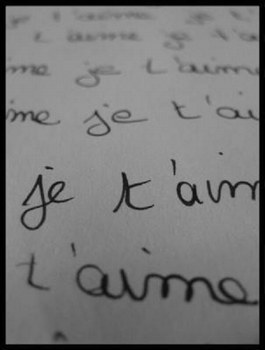 je t'aime je t
t'aime je t'a
ime je t'aime
ime je t'ai
je t'aim
t'aime